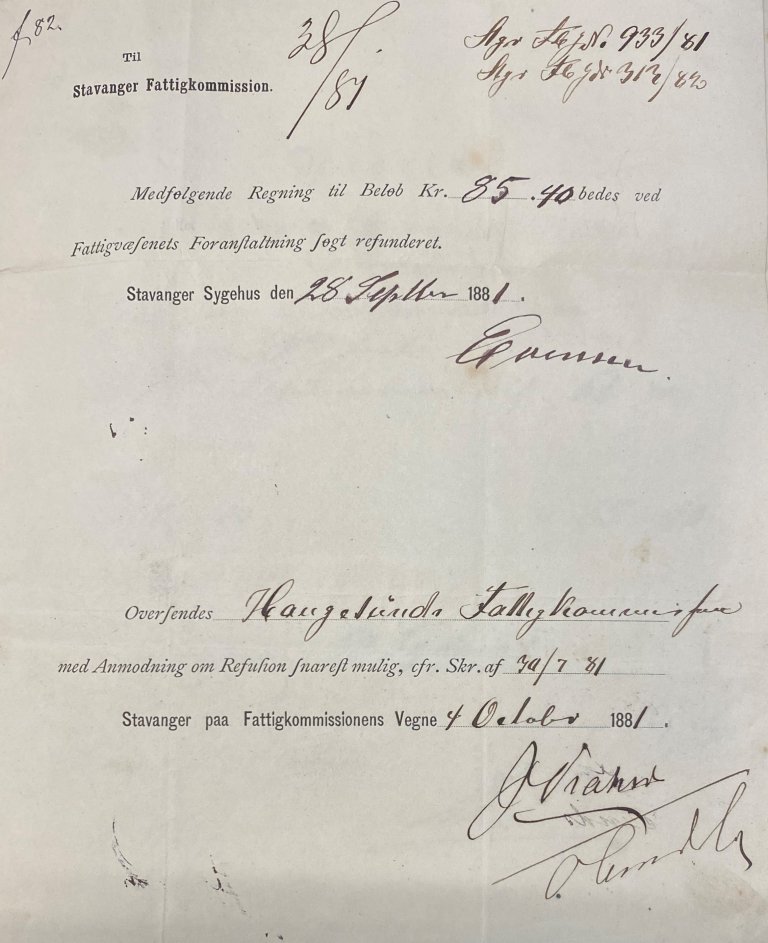 82.
38/81
933/81
313/82
Til
Stavanger Fattigkommission.
Medfølgende Regning til Beløb Kr. 85.40 bedes ved
Fattigvæſenets Foranſtaltning ſøgt refunderet.
Stavanger Sygehus den 28 Septbr 1881.
Overſendes Haugesunds Fattigkommisſion
med Anmodning om Refuſion ſnareſt mulig, cfr. Skr. af 30/7 81
Stavanger paa Fattigkommissionens Vegne 4 Octobr 1881.